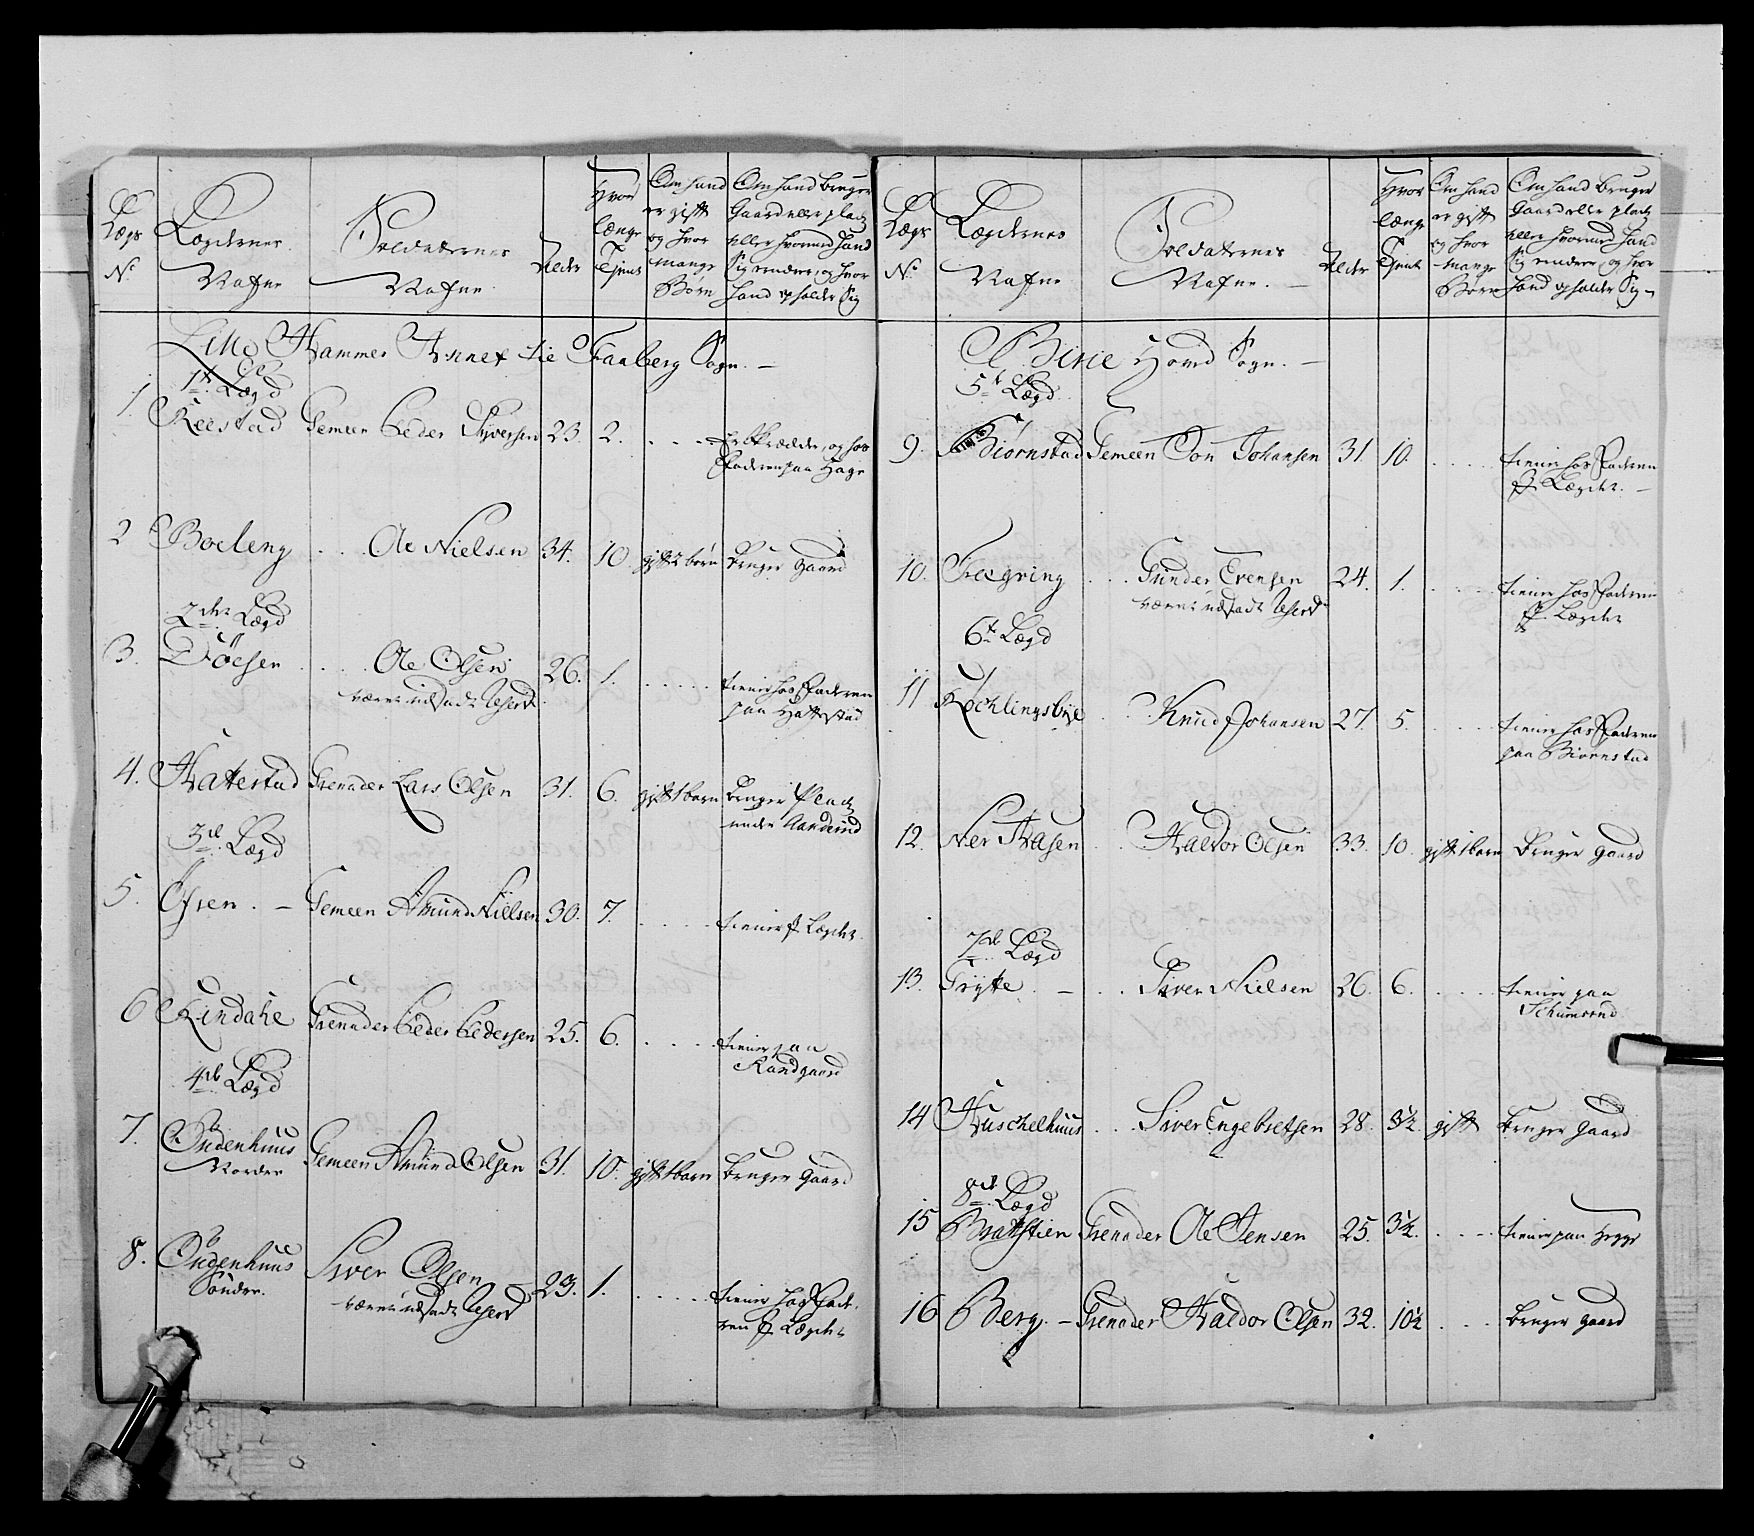 Lægs
No
Lægdernes
Nafne
Soldaternes
Nafne.
Alder
Hvor
længe
Tient
Om hand
er gift
og hvor
mange
Børn
Om hand bruger
Gaard eller plads
eller hvormed hand
Sig ernærer, og hvor
hand opholder Sig
Lille Hammer Annex til Faaberg Sogn. —
1te Lægd
1. Reistad Gemeen Peder Syversen 23. 2. . . . . er Skrædder, og hos
Faderen paa Hage
2 Boeleng . . . Ole Nielsen 34. 10 gift 2 børn bruger gaard
2den Lægd
3. Döesen . . . . Ole Olsen 26. 1. . . . . . tiener hos Faderen
været udsadt Reserve
paa Hattestad
4. Hattestad Grenader Lars Olsen 31. 6. gift 1 barn bruger Plads
under
3de Lægd
5. Öfren. — Gemeen Amund Nielsen 30. 7. . . . . tiener p. Lægdet.
6 Rindahl Grenader Peder Pedersen 25. 6. . . . . tiener paa
Randgaard
4de Lægd
7. Oudenhuus
Nordre
Gemeen Amund Olsen 31. 10. gift 1 barn bruger gaard
8. Oudenhuus
Söndre.
Siver Olsen 23. 1. . . . . . tiener hos Fade-
været udsadt Reserve
ren p. Lægdet
Lægs
No
Lægdernes
Nafne
Soldaternes
Nafne. —
Alder
Hvor
længe
Tient
Om hand
er gift
og hvor
mange
Børn
Om hand bruger
Gaard eller plads
eller hvormed hand
Sig ernærer, og hvor
hand opholder Sig
Birie Hoved Sogn. —
5te Lægd
9. Biørnstad Gemeen Jon Johansen 31. 10. . . . . tiener hos Faderen
p. Lægdet. —
10. Freegring . . . Gunder Evensen 24. 1. . . . . tiener hos Faderen
været udsadt Reserve
p. Lægdet
6te Lægd
11 Röchlingsbye . . . Knud Johansen 27. 5. . . . . tiener hos Faderen
paa Biørnstad
12. Ner Aasen . . Haldor Olsen 33. 10. gift 1 barn bruger gaard
7de Lægd
13. Grytte. — . . Siver Nielsen 26. 6. . . . . tiener paa
Schumsrud
14 Huschelhuus . . . Siver Engebretsen 28. 3½. gift bruger gaard
8de Lægd
15 Brattstien Grenader Ole Jensen 25. 3½. . . . . tiener paa Hegge
16 Berg. — Grenader Haldor Olsen 32. 10½ . . . bruger gaard